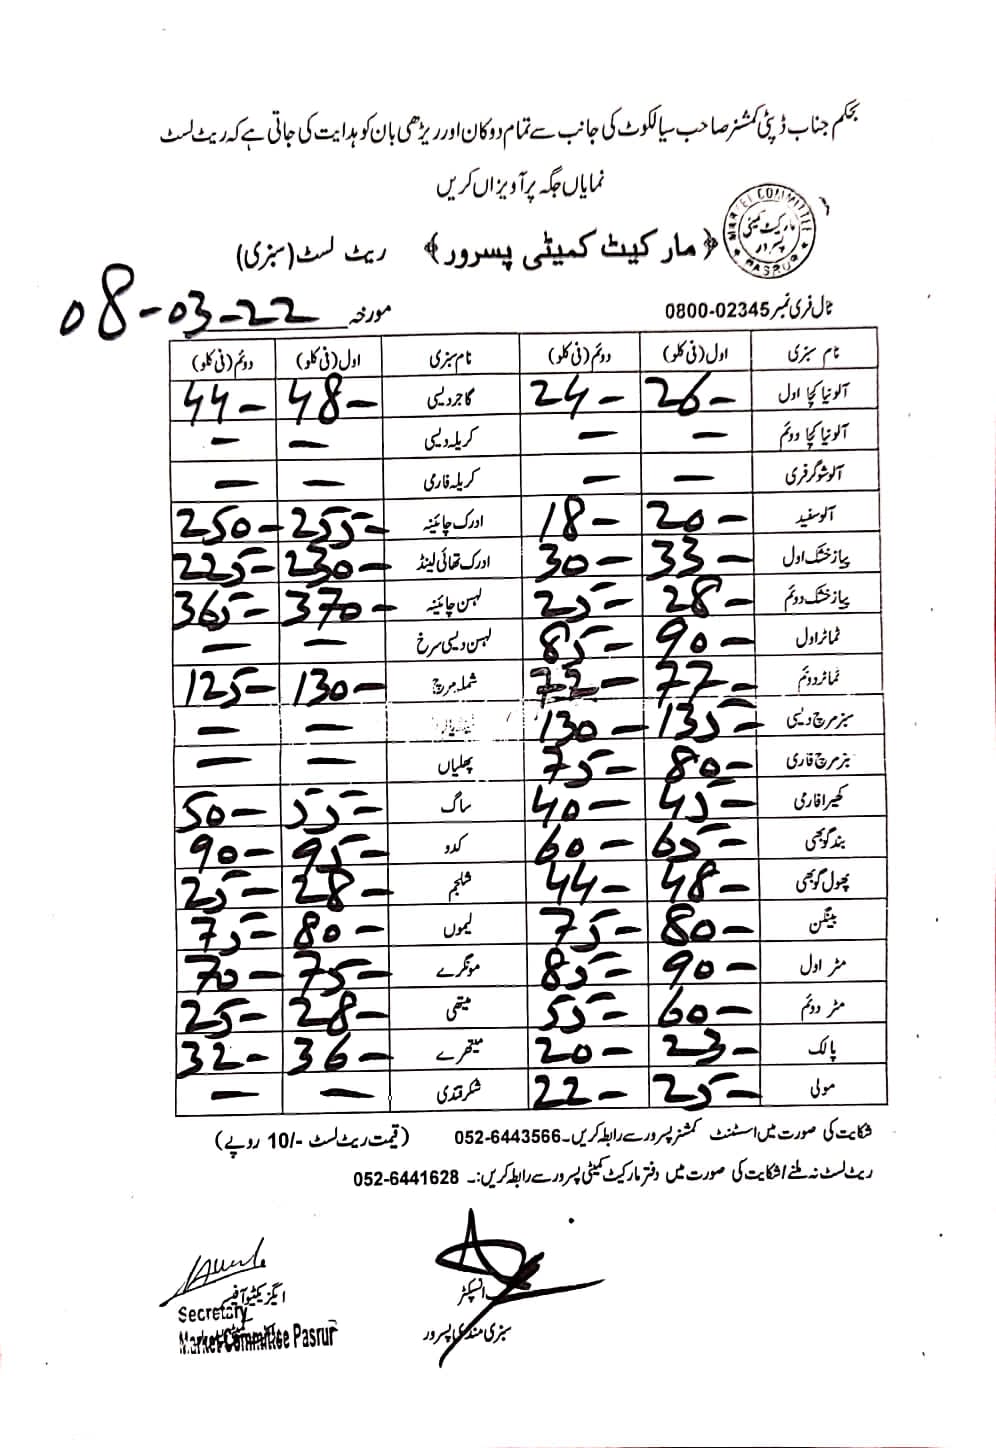 بحکم جناب ڈپٹی کمشنر صاحب سیالکوٹ کی جانب سے تمام دوکان اور ریڑھی بان کو ہدایت کی جاتی ہے کہ ریٹ لسٹ
نمایاں جگہ پر آویزاں کریں
MARKET COMMITTEE
مارکیٹ کمیٹی
پسرور
PASRUR
﴿مارکیٹ کمیٹی پسرور﴾ ریٹ لسٹ (سبزی)
ٹال فری نمبر 0800-02345 مورخہ 08-03-22
نام سبزی اول (فی کلو) دوئم (فی کلو) نام سبزی اول (فی کلو) دوئم (فی کلو)
آلو نیا کچا اول 26- 24- گاجر دیسی 48- 44-
آلو نیا کچا دوئم - - کریلہ دیسی - -
آلو شوگر فری - - کریلہ فارمی - -
آلو سفید 20- 18- ادرک چائینہ 255- 250-
پیاز خشک اول 33- 30- ادرک تھائی لینڈ 230- 225-
پیاز خشک دوئم 28- 25- لہسن چائینہ 370- 365-
ٹماٹر اول 90- 85- لہسن دیسی سرخ - -
ٹماٹر دوئم 77- 72- شملہ مرچ 130- 125-
سبز مرچ دیسی 135- 130- - -
سبز مرچ فارمی 80- 75- پھلیاں - -
کھیرا فارمی 45- 40- ساگ 55- 50-
بند گوبھی 65- 60- کدو 95- 90-
پھول گوبھی 48- 44- شلجم 28- 25-
بینگن 80- 75- لیموں 80- 75-
مٹر اول 90- 85- مونگرے 75- 70-
مٹر دوئم 60- 55- میتھی 28- 25-
پالک 23- 20- میتھرے 36- 32-
مولی 25- 22- شکر قندی - -
شکایت کی صورت میں اسٹنٹ کمشنر پسرور سے رابطہ کریں۔ 052-6443566 (قیمت ریٹ لسٹ -/10 روپے)
ریٹ لسٹ نہ ملنے / شکایت کی صورت میں دفتر مارکیٹ کمیٹی پسرور سے رابطہ کریں:۔ 052-6441628
انسپکٹر
سبزی منڈی پسرور
ایگزیکٹو آفیسر
Secretary
Market Committee Pasrur